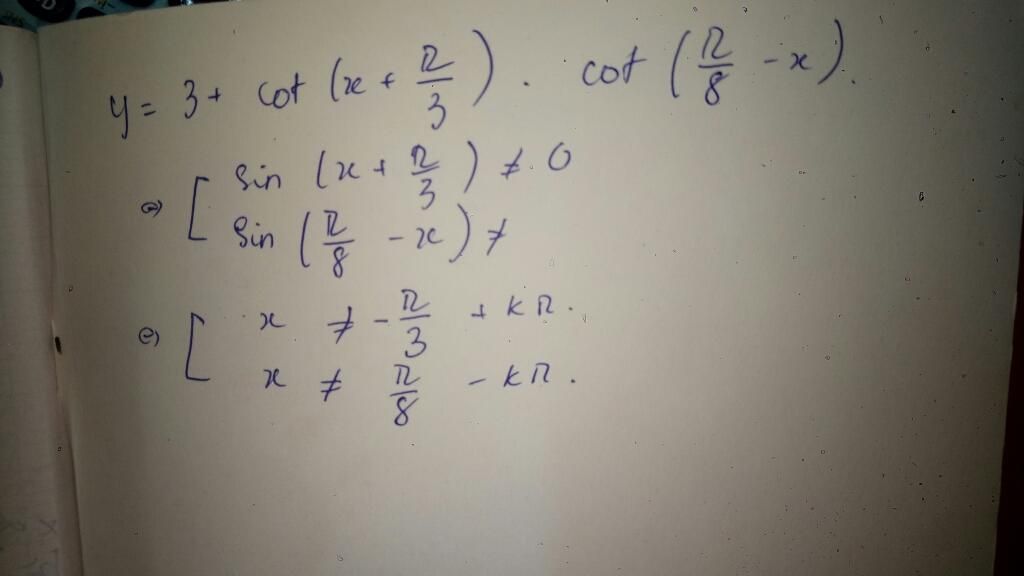 y = 3 + cot (x + π/3) . cot (π/8 - x).
⇔ [ sin (x + π/3) ≠ 0
sin (π/8 - x) ≠
⇔ [ x ≠ - π/3 + kπ.
x ≠ π/8 - kπ.